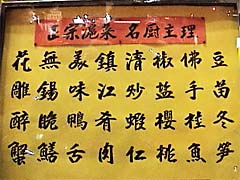 正宗滬菜 名厨主理
豆苗冬笋
佛手桂魚
椒盐櫻桃
清炒蝦仁
鎮江肴肉
美味鴨舌
無錫脆鱔
花雕醉蟹